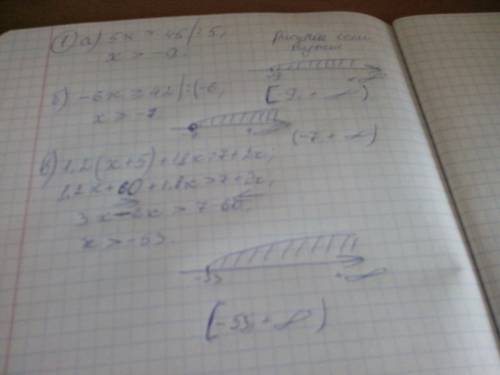 ① а) 5x > 45 |:5, Рисунки если нужны
x > -9.
[9, + ∞)
б) -6x ≥ 42 |:(-6,
x > -7
(-7, + ∞)
в) 1,2(x+5)+1,8x>7+2x,
1,2x+60+1,8x>7+2x,
3x-2x > 7-60,
x > -53.
-53 +∞
[-53 + ∞)